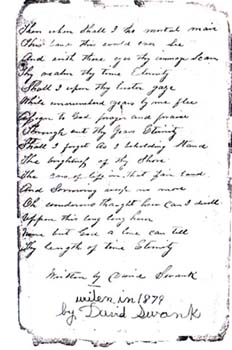 Then when Shall I the mortal man
This last this world can see
And with these eyes thy courage scan
Thy realm thy time Eternity
Shall I upon thy luster gaze
While unnumbered years by me flee
to God prayer and praise
Through out thy years Eternity
Shall I forget As I beholding Stand
The brightness of thy Shore
The cares of life in that fair land
And Sorrowing weep no more
Oh wonderous thought how can I dwell
Uppon this long long hour
None but God a lone can tell
Thy length of time Eternity
Written by David Swank
writen in 1879
by David Swank